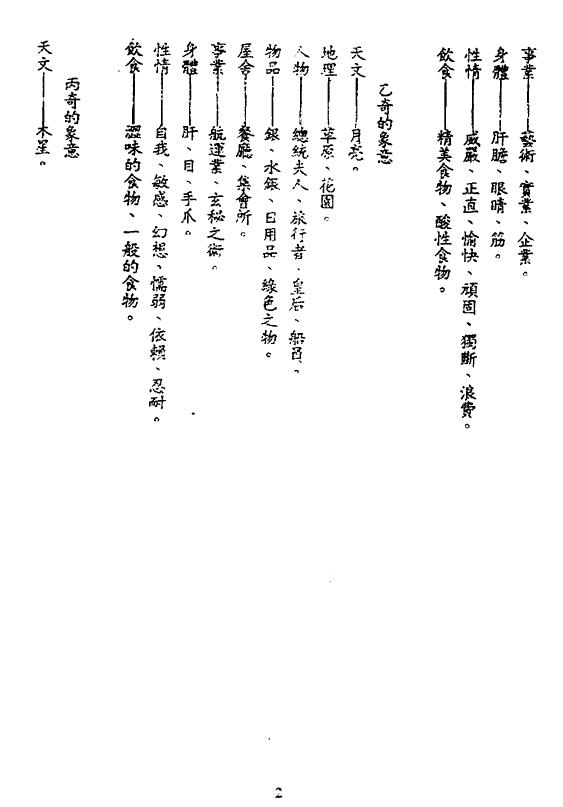 事業——藝術、實業、企業。
身體——肝膽、眼睛、筋。
性情——威嚴、正直、愉快、頑固、獨斷、浪費。
飲食——精美食物、酸性食物。
乙奇的象意
天文——月亮。
地理——草原、花園。
人物——總統夫人、旅行者、皇后、船員、
物品——銀、水銀、日用品、綠色之物。
屋舍——餐廳、集會所。
事業——航運業、玄秘之術。
身體——肝、目、手爪。
性情——自我、敏感、幻想、懦弱、依賴、忍耐。
飲食——澀味的食物、一般的食物。
丙奇的象意
天文——木星。
2